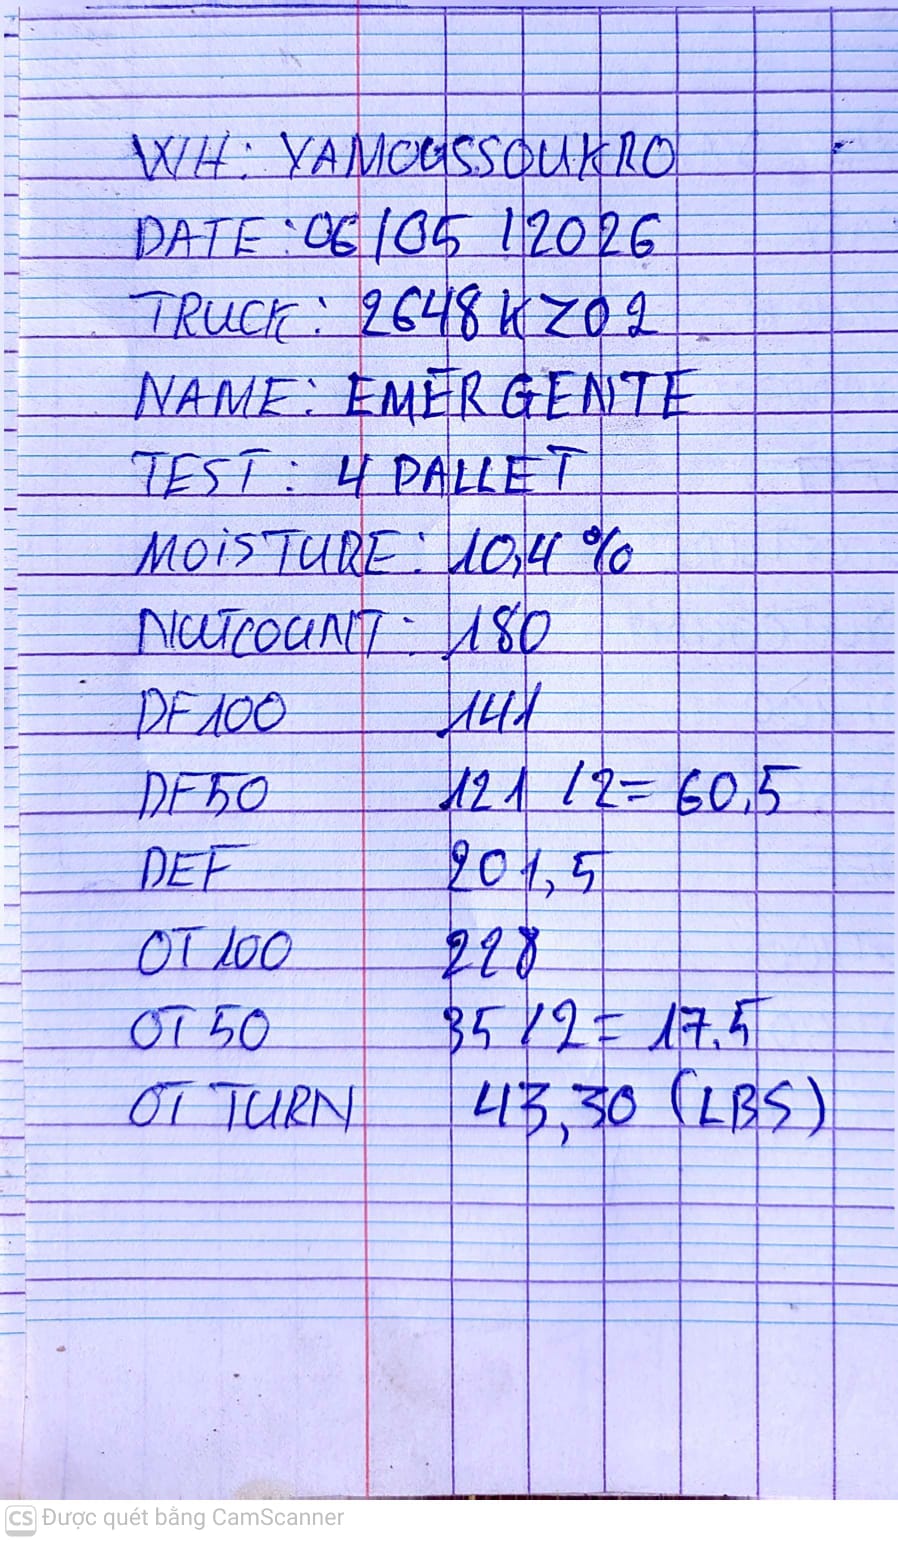 WH: YAMOUSSOUKRO
DATE: 06/05/2026
TRUCK: 2648KZ02
NAME: EMERGENTE
TEST: 4 PALLET
MOiSTURE: 10,4%
NUTCOUNT: 180
DF100 141
DF50 121/2= 60,5
DEF 201,5
OT100 228
OT50 35/2= 17.5
OT TURN 43,30 (LBS)
CS Được quét bằng CamScanner